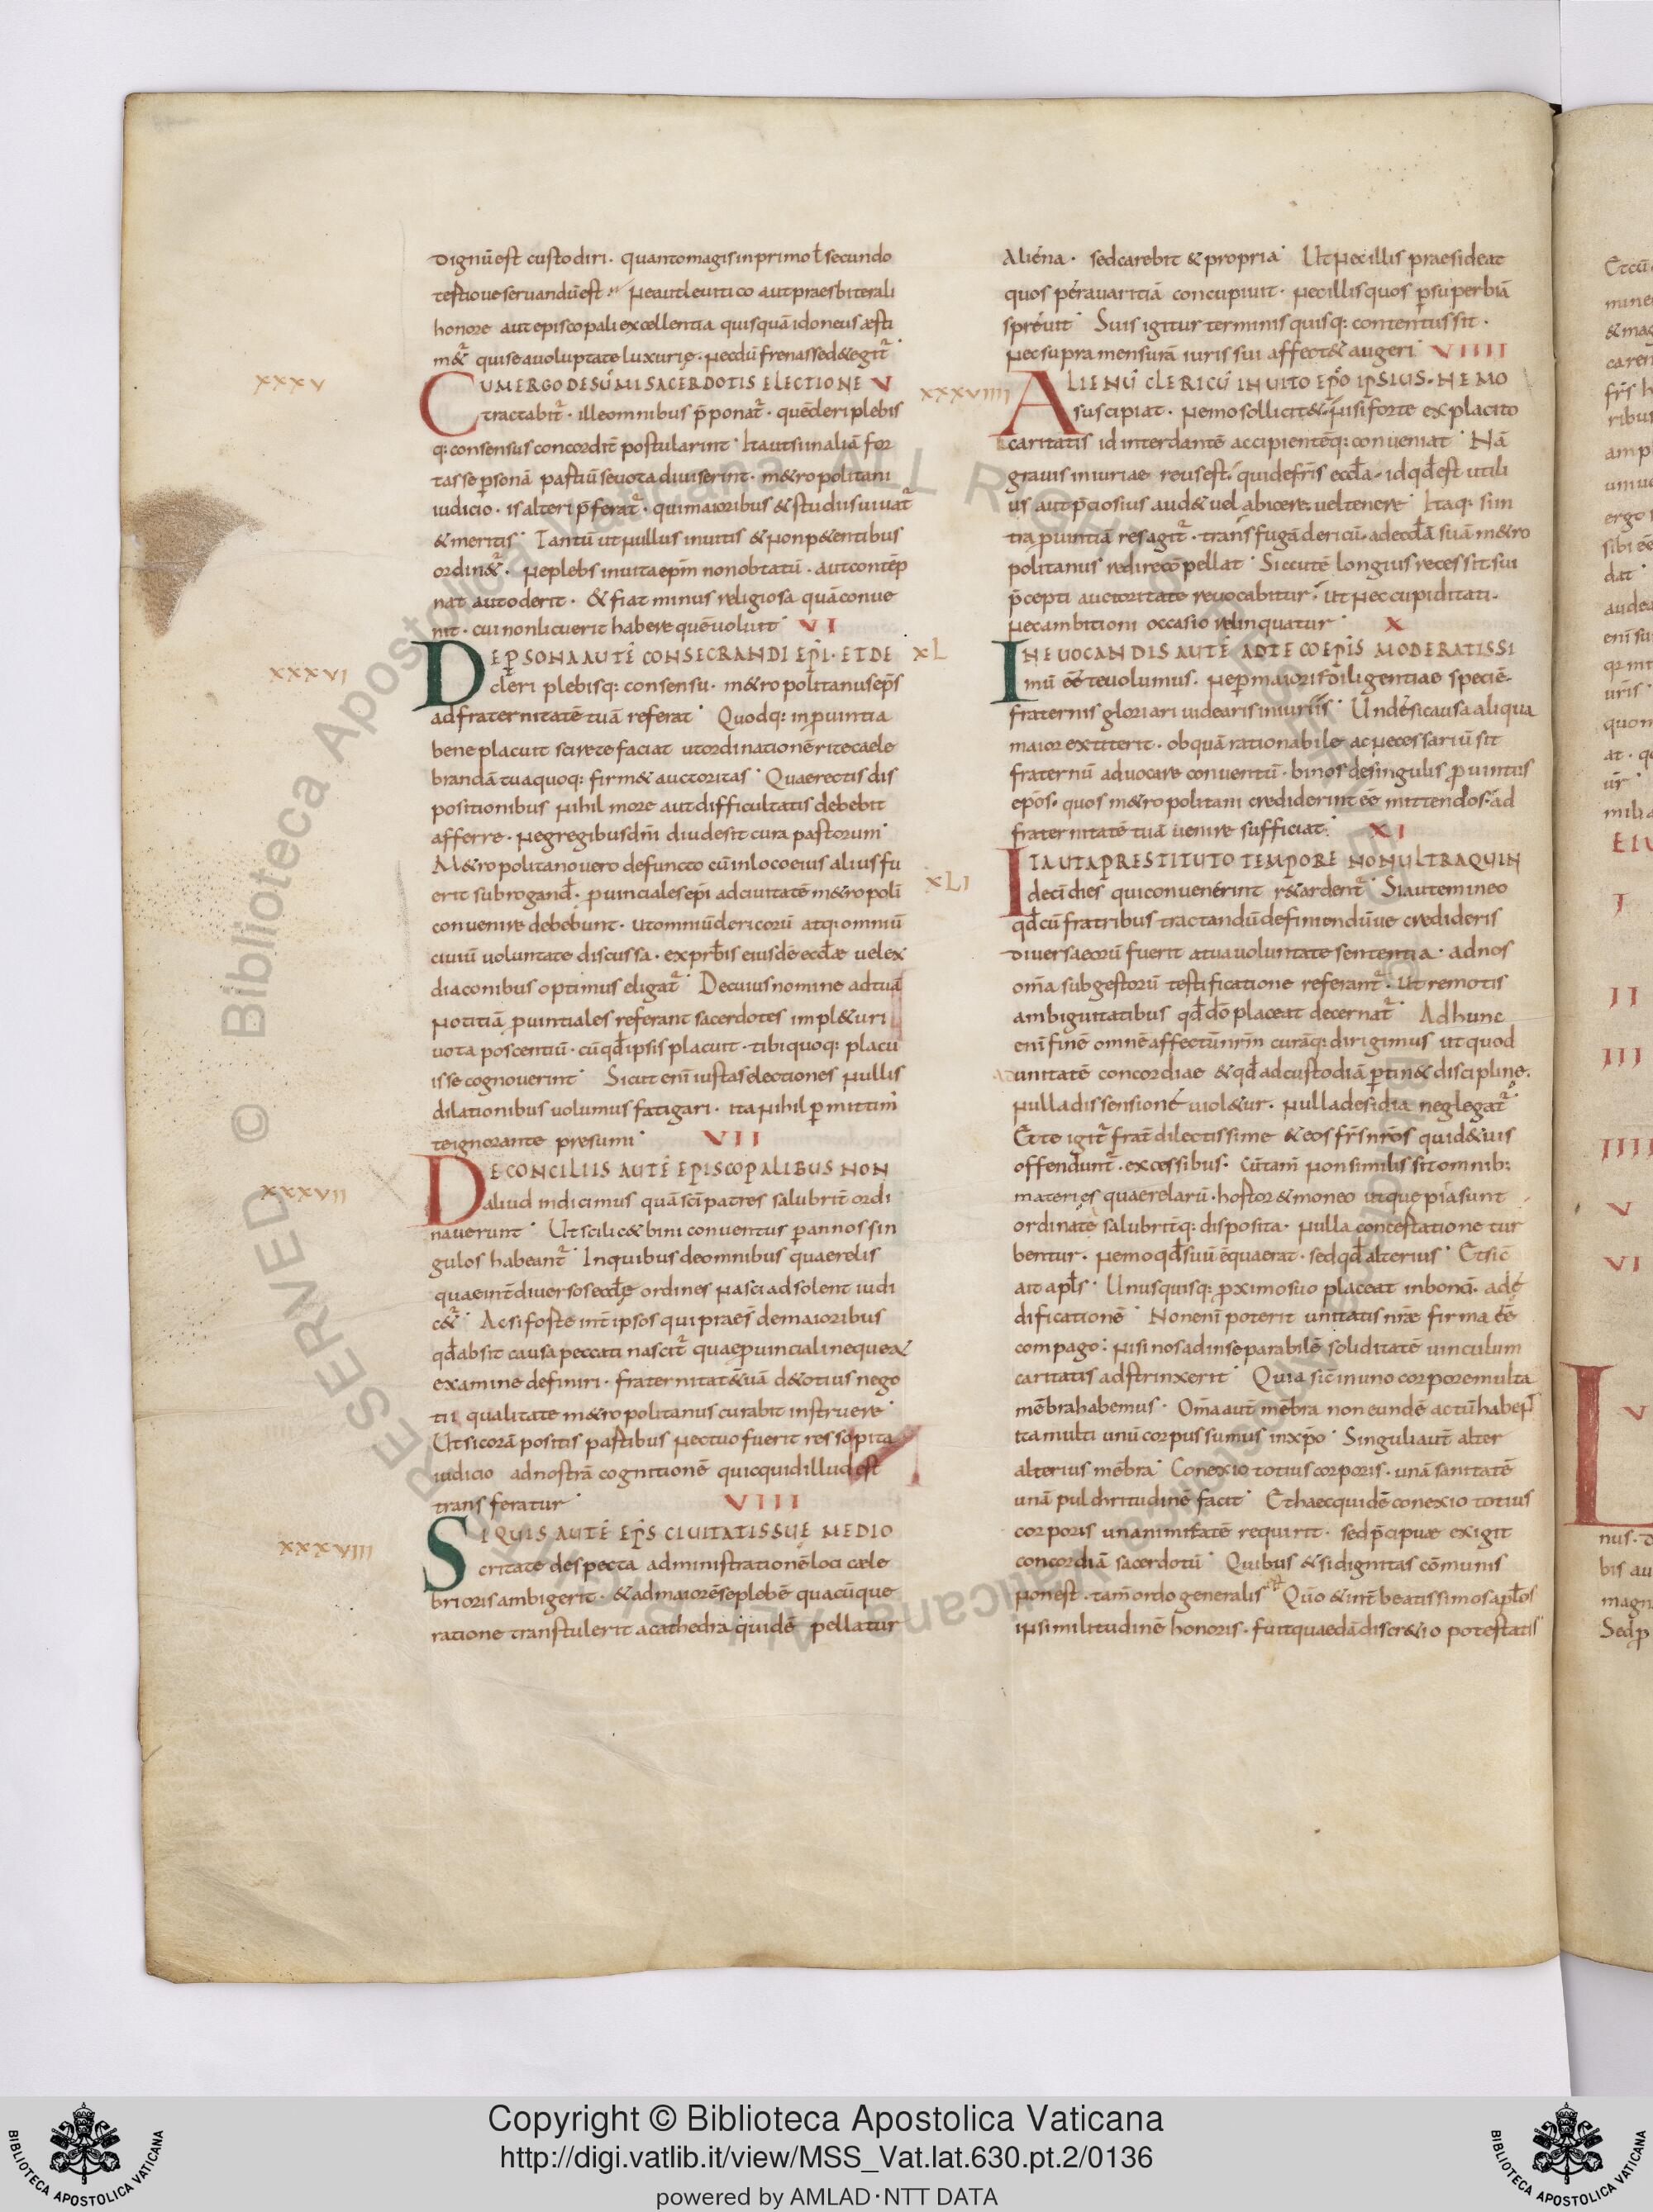 dignũ est custodiri. quanto magis in primo ł secundo
tertioue seruandũ est. Ne aut leuitico aut praesbiterali
honore aut episcopali excellentia quisquã idoneus aesti
m&ʳ qui se a uoluptate luxurię. necdũ frenasse d&egitʳ
CUM ERGO DE SŨMI SACERDOTIS ELECTIONE V
tractabitʳ. ille omnibus p̄ponatʳ. quẽ cleri plebis
q: consensus concordit̄ postularint. Ita ut si in aliã for
tasse ꝑsonã partiũ se uota diuiserint. m&ropolitani
iudicio. is alteri p̄feratʳ. qui maioribus & studiis iuuatʳ
& meritis. Tantũ ut nullus inuitis & non p&entibus
ordin&ʳ. Ne plebs inuita ep̄m non obtatũ. aut contẽp
nat aut oderit. & fiat minus religiosa quã conue
nit. cui non licuerit habere quẽ uoluit VI
XXXV
DE PSONA AUTĒ CONSECRANDI EP̄I. ET DE
cleri plebisq: consensu. m&ropolitanus ep̄s
ad fraternitatẽ tuã referat. Quodq: in ꝓuintia
bene placuit scire te faciat ut ordinationẽ rite caele
brandã tua quoq: firm& auctoritas. Quae rectis dis
positionibus nihil more aut difficultatis debebit
afferre. Ne gregibus dñi diu desit cura pastorum.
M&ropolitano uero defuncto cũ in loco eius alius fu
erit subrogand̄. ꝓuinciales ep̄i ad ciuitatẽ m&ropoli
conuenire debebunt. ut omniũ clericorũ atq: omniũ
ciuiũ uoluntate discussa. ex prb̄is eiusdẽ eccl̄ae uel ex
diaconibus optimus eligatʳ. De cuius nomine ad tuã
notitiã ꝓuintiales referant sacerdotes impl&uri
uota poscentiũ. cũ qđ ipsis placuit. tibi quoq: placu
isse cognouerint. Sicut enĩ iustas electiones nullis
dilationibus uolumus fatigari. ita nihil ꝑmittim̄
te ignorante presumi. VII
XXXVI
DE CONCILIIS AUTĒ EPISCOPALIBUS NON
aliud indicimus quã sc̄i patres salubrit̄ ordi
nauerunt. Ut scilic& bini conuentus ꝑ annos sin
gulos habeantʳ. In quibus de omnibus quaerelis
quae int̄ diuersos eccl̄ę ordines nasci adsolent iudi
c&ʳ. Ac si forte int̄ ipsos qui praes̄ de maioribus
qđ absit causa peccati nascitʳ quae ꝓuinciali nequea&
examine definiri. fraternitatẽ tuã d& otius nego
tii qualitate m&ropolitanus curabit instruere.
Ut si corã positis partibus nec tuo fuerit res sopita
iudicio ad nostrã cognitionẽ quicquid illud est
transferatur. VIII
XXXVII
SI QUIS AUTĒ EP̄S CIUITATIS SUĘ MEDIO
critate despecta administrationẽ loci caele
brioris ambigerit. & ad maiorẽ se plebẽ quacũque
ratione transtulerit a cathedra quidẽ pellatur
XXXVIII
Aliena. sed carebit & propria. Ut nec illis praesideat
quos per auaritiã concupiuit. nec illis quos ꝑ superbiã
spreuit. Suis igitur terminis quisq: contentus sit.
Nec supra mensurã iuris sui affect& augeri VIIII
XXXVIIII
ALIENŨ CLERICŨ INUITO EP̄O IPSIUS. NEMO
suscipiat. Nemo sollicit&. Nisi forte ex placito
caritatis id inter dantẽ accipientẽq: conueniat. Nã
grauis iniuriae reus est. qui de fr̄is eccl̄a. id qđ est utili
us aut p̄tiosius aud& uel abicere uel tenere. Itaq: si in
tra ꝓuintiã res agitʳ. transfugã clericũ ad eccl̄ã suã m&ro
politanus redire cõpellat. Si autẽ longius recessit sui
p̄cepti auctoritate reuocabitur. ut nec cupiditati.
Nec ambitioni occasio relinquatur. X
XL
IN EUOCANDIS AUTĒ AD TE COEP̄IS MODERATISSI
mũ ẽẽ te uolumus. Ne ꝑ maioris diligentiae speciẽ
fraternis gloriari uidearis iniuriis. Unde si causa aliqua
maior extiterit. ob quã rationabile ac necessariũ sit
fraternũ aduocare conuentũ. binos de singulis ꝓuintiis
ep̄os. quos m&ropolitani crediderint ẽẽ mittendos. ad
fraternitatẽ tuã uenire sufficiat. XI
XLI
ITA UT A PRESTITUTO TEMPORE NON ULTRA QUIN
decĩ dies qui conuenerint r&ardentʳ. Si autem in eo
qđ cũ fratribus tractandũ definiendũue credideris
diuersa eorũ fuerit a tua uoluntate sententia. ad nos
om̄a sub gestorũ testificatione referantʳ. Ut remotis
ambiguitatibus qđ dõ placeat decernatʳ. Ad hunc
enĩ finẽ omnẽ affectũ nr̄m curãq: dirigimus ut quod
unitatẽ concordiae & qđ ad custodiã ꝑtin& discipline.
Nulla dissensione uiol&ur. nulla desidia neglegatʳ.
Et te igitʳ frat̄ dilectissime & eos fr̄s nr̄os qui d& uis
offenduntʳ. excessibus. cũ tam̄ non similis sit omnib:
materies quaerelarũ. hortor & moneo ut que pia sunt
ordinate salubrit̄q: disposita. Nulla contestatione tur
bentur. Nemo qđ suũ ẽ quaerat. sed qđ alterius. Et sic
ait apl̄s. Unusquisq: ꝓximo suo placeat in bonũ. ad ę
dificationẽ. Non enĩ poterit unitatis nr̄ae firma ẽẽ
compago: nisi nos ad inseparabilẽ soliditatẽ uinculum
caritatis adstrinxerit. Quia sic in uno corpore multa
mẽbra habemus. Om̄a aut̄ mẽbra non eundẽ actũ habeñt
Ita multi unũ corpus sumus in xp̄o. Singuli aut̄ alter
alterius mẽbra. Conexio totius corporis. unã sanitatẽ
unã pulchritudinẽ facit. Et haec quidẽ conexio totius
corporis unanimitatẽ requirit. sed p̄cipuae exigit
concordiã sacerdotũ. Quibus & si dignitas cõmunis
non est. tam̄ ordo generalis. Qũo & int̄ beatissimos apl̄os
in similitudinẽ honoris. fuit quaedã discr&io potestatis
Copyright © Biblioteca Apostolica Vaticana
http://digi.vatlib.it/view/MSS_Vat.lat.630.pt.2/0136
powered by AMLAD·NTT DATA
BIBLIOTECA APOSTOLICA VATICANA
BIBLIOTECA APOSTOLICA VATICANA